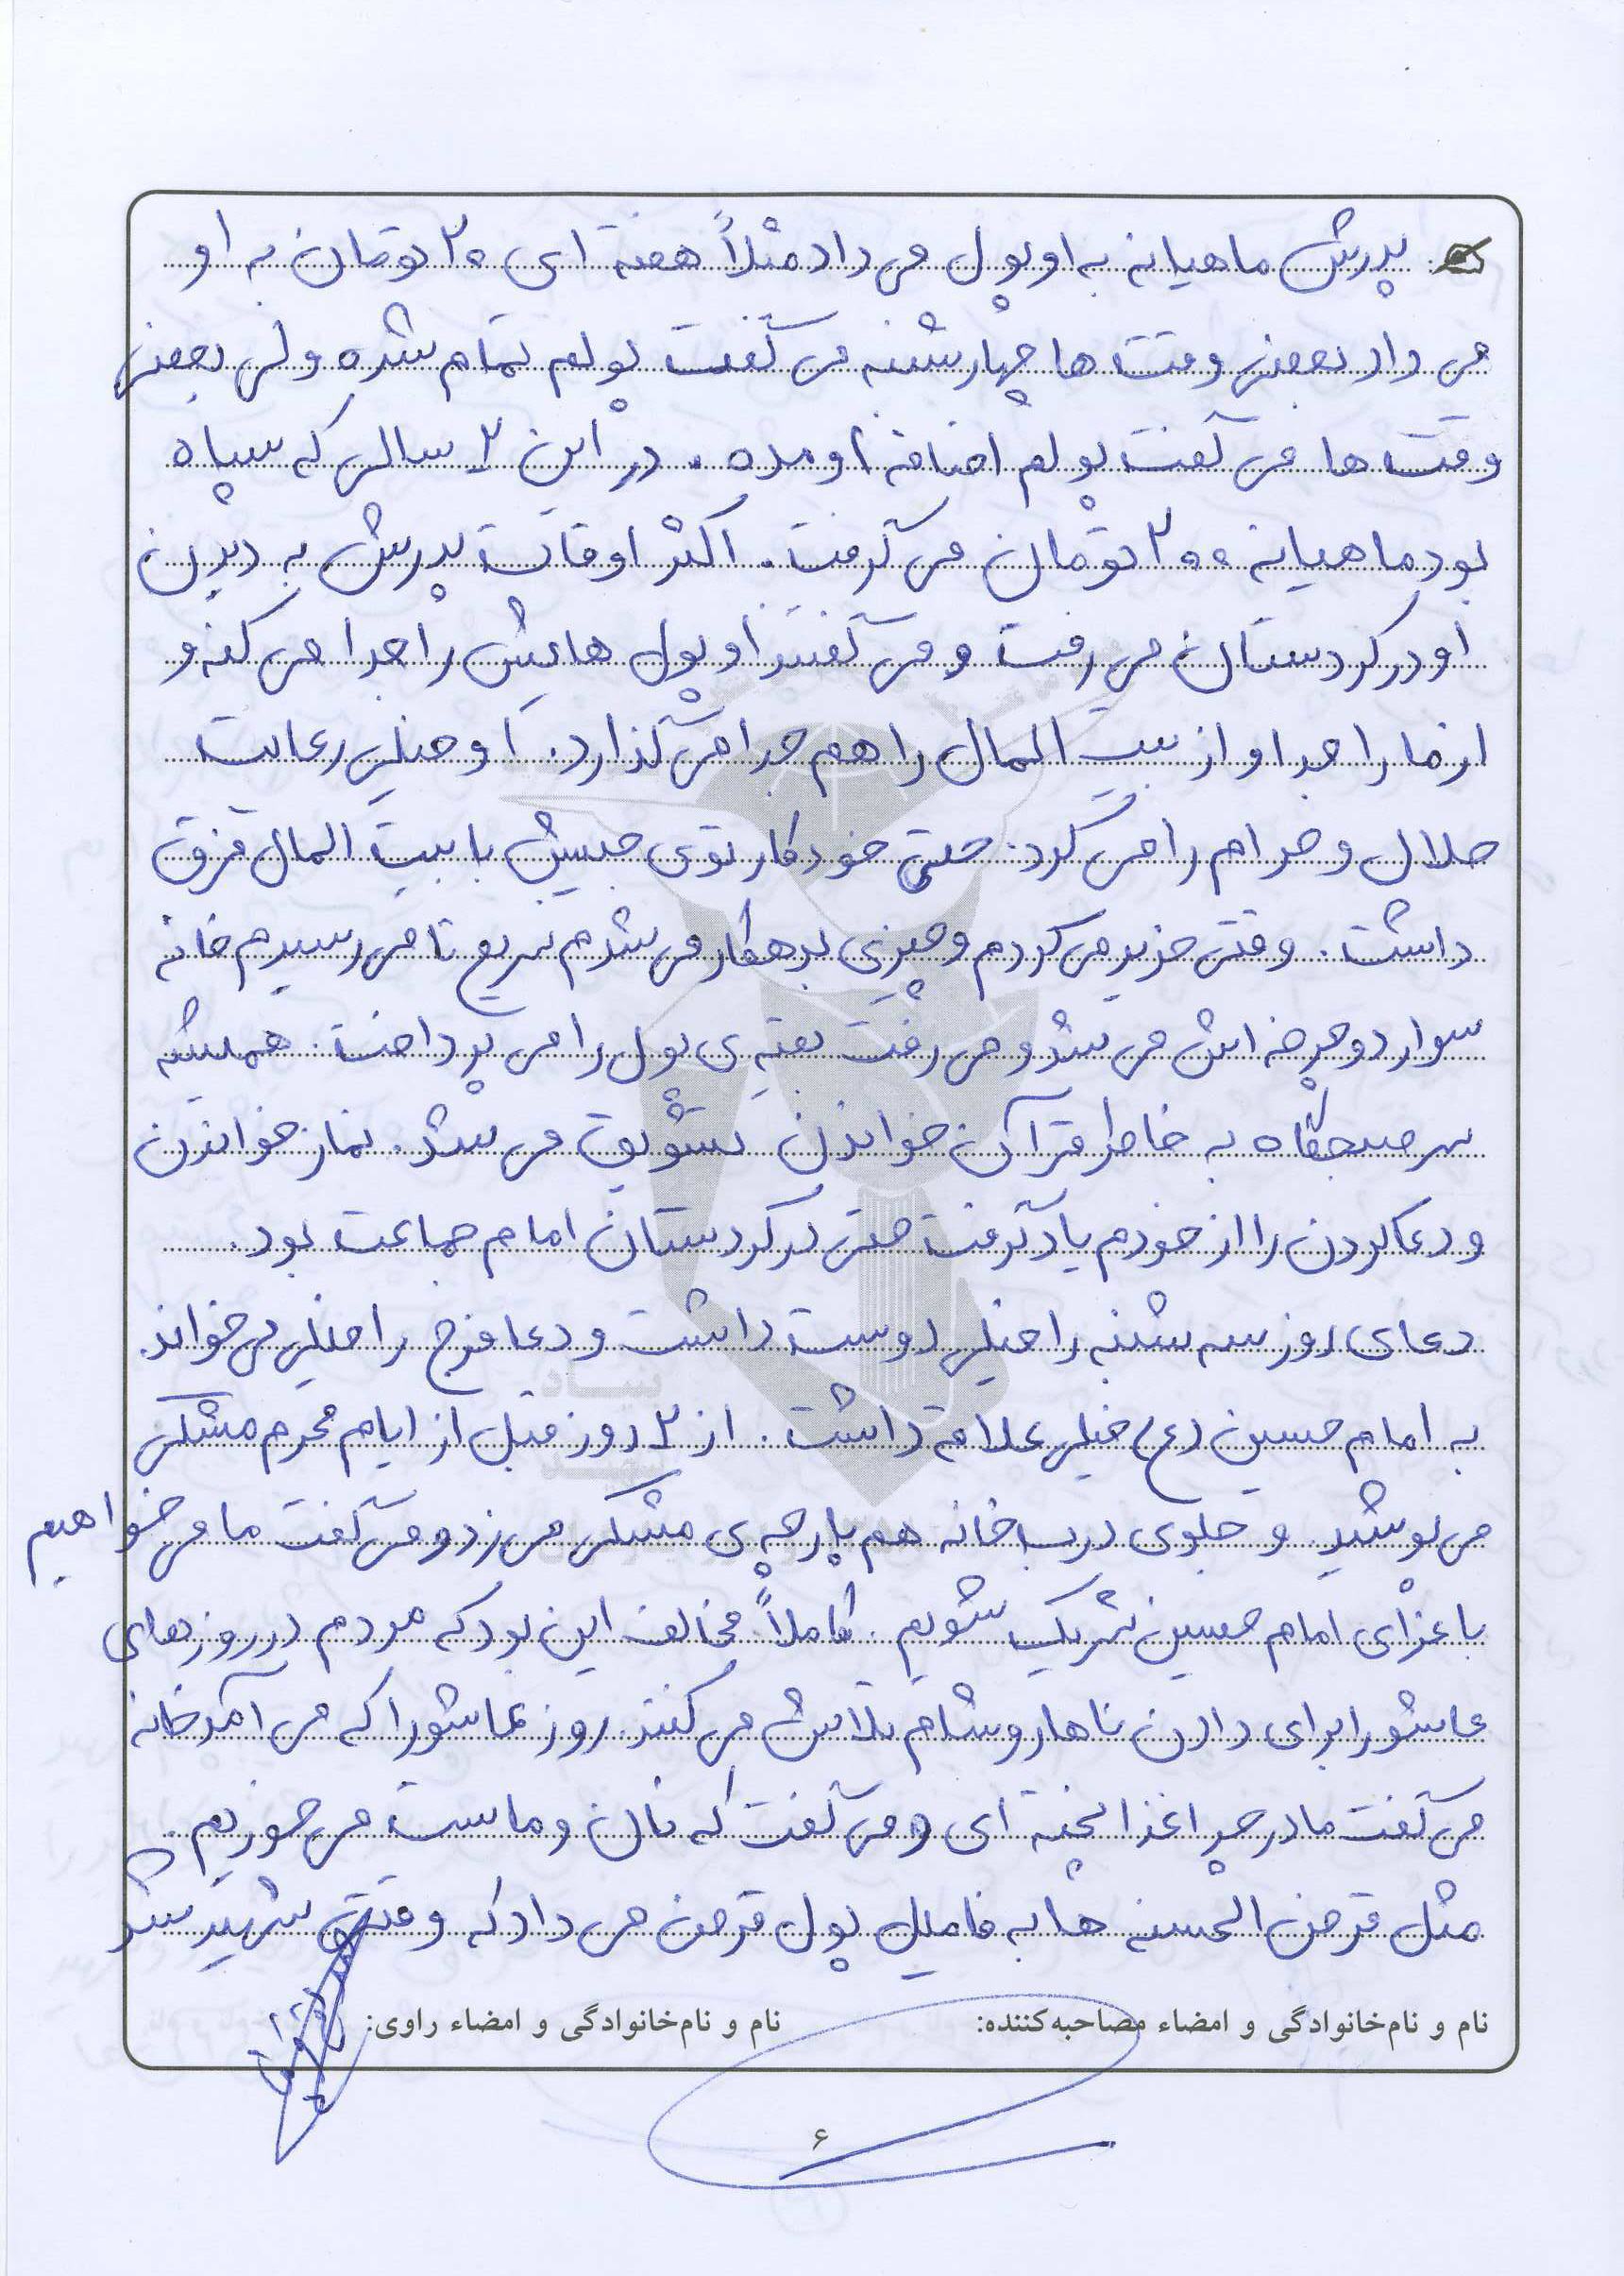 پدرش ماهیانه به او پول می داد مثلاً هفته ای ۲۰ تومان به او
می داد بعضی وقت ها چهارشنبه می گفت پولم تمام شده ولی بعضی
وقت ها می گفت پولم اضافه اومده . در این ۲ سالی که سپاه
بود ماهیانه ۲۰۰ تومان می گرفت . اکثر اوقات پدرش به دیدن
او در کردستان می رفت و می گفتند او پول هایش را جدا می کند و
از ما را جدا و از بیت المال را هم جدا می گذارد . او خیلی رعایت
حلال و حرام را می کرد . حتی خودکار توی جیبش با بیت المال فرق
داشت . وقتی خرید می کردم و چیزی بدهکار می شدم سریع تا می رسیدم خانه
سوار دوچرخه اش می شد و می رفت بقیه ی پول را می پرداخت . همیشه
سر صبحگاه به خاطر قرآن خواندن تشویق می شد . نماز خواندن
و دعا کردن را از خودم یاد گرفت حتی در کردستان امام جماعت بود .
دعای روز سه شنبه را خیلی دوست داشت و دعا فرج را خیلی می خواند .
به امام حسین (ع) خیلی علاقه داشت . از ۲ روز قبل از ایام محرم مشکی
می پوشید و جلوی درب خانه هم پارچه ی مشکی می زد و می گفت ما می خواهیم
با عزای امام حسین شریک شویم . کاملاً مخالف این بود که مردم در روزهای
عاشورا برای دادن ناهار و شام تلاش می کنند . روز عاشورا که می آمد خانه
می گفت مادر چرا غذا پخته ای و می گفت که نان و ماست می خوریم .
مثل قرض الحسنه ها به فامیل پول قرض می داد که وقتی شهید شد
نام و نام‌خانوادگی و امضاء مصاحبه‌کننده: نام و نام‌خانوادگی و امضاء راوی:
۶